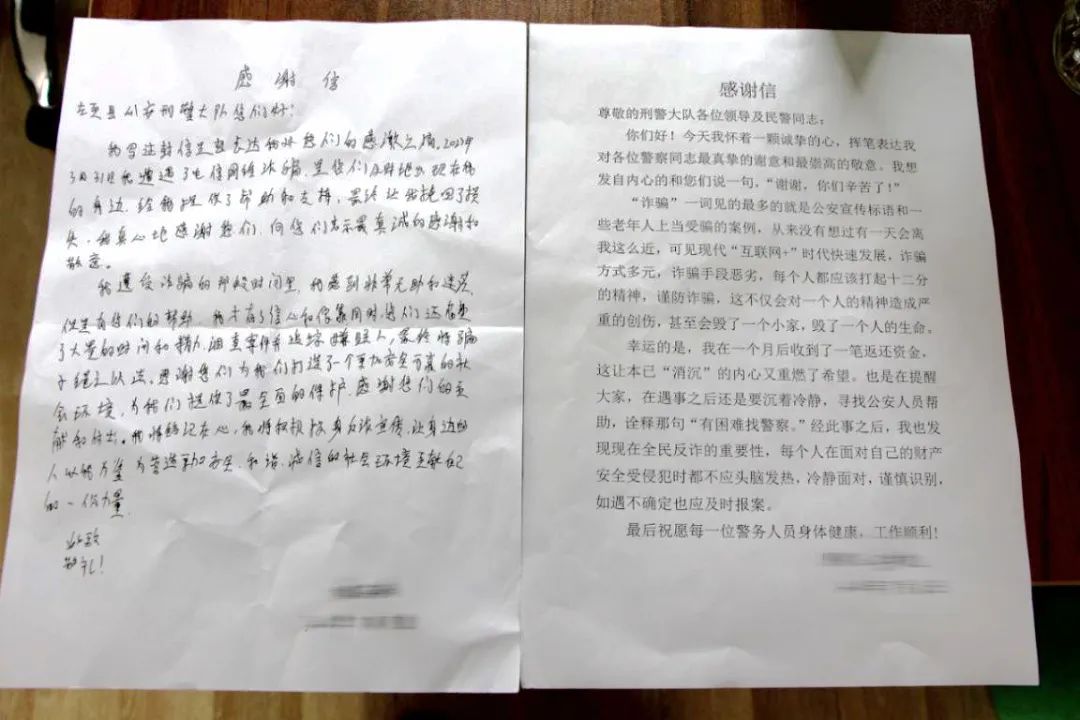 感谢信
县公安刑警大队您们好:
我写这封信是想表达我对您们的感激之情,2023年
3月31日我遭遇了电信网络诈骗,是您们及时地出现在我
的身边,给我提供了帮助和支持,最终让我挽回了损
失,我真心地感谢您们,向您们表示最真诚的感谢和
敬意。
我遭受诈骗的那段时间里,我感到非常无助和迷茫,
但是有您们的帮助,我才有了信心和依靠同时,您们还花费
了大量的时间和精力,调查案件并追踪嫌疑人,最终将骗
子绳之以法,感谢您们为我们打造了一个更加安全可靠的社
会环境,为我们提供了最全面的保护,感谢您们的贡
献和付出。我将铭记在心,我将积极参与反诈宣传,让身边的
人 为营造更加安全、和谐、诚信的社会环境贡献自己
的一份力量.
此致
敬礼!
感谢信
尊敬的刑警大队各位领导及民警同志:
你们好!今天我怀着一颗诚挚的心,挥笔表达我
对各位警察同志最真挚的谢意和最崇高的敬意。我想
发自内心的和您们说一句,“谢谢,你们辛苦了!”
“诈骗”一词见的最多的就是公安宣传标语和一
些老年人上当受骗的案例,从来没有想过有一天会离
我这么近,可见现代“互联网+”时代快速发展,诈骗
方式多元,诈骗手段恶劣,每个人都应该打起十二分
的精神,谨防诈骗,这不仅会对一个人的精神造成严
重的创伤,甚至会毁了一个小家,毁了一个人的生命。
幸运的是,我在一个月后收到了一笔返还资金,
这让本已“消沉”的内心又重燃了希望。也是在提醒
大家,在遇事之后还是要沉着冷静,寻找公安人员帮
助,诠释那句“有困难找警察。”经此事之后,我也发
现现在全民反诈的重要性,每个人在面对自己的财产
安全受侵犯时都不应头脑发热,冷静面对,谨慎识别,
如遇不确定也应及时报案。
最后祝愿每一位警务人员身体健康,工作顺利!